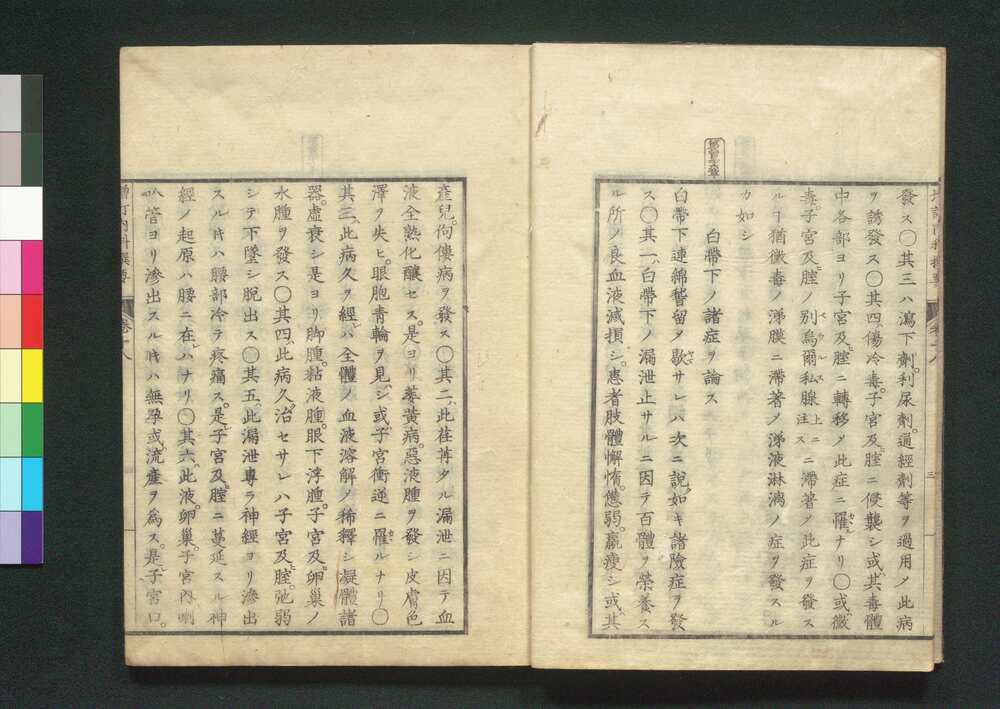 發ス〇其三ハ瀉下劑。利尿劑。通經劑等ヲ過用ノ此病
ヲ誘發ス〇其四、傷冷毒。子宮及腟ニ侵襲シ或ハ其毒體
中各部ヨリ子宮及ヒ腟ニ轉移ノ此症ニ罹ルナリ〇或ハ黴
毒。子宮及腟ノ別烏爾私腺上ニ注スニ滯著ノ此症ヲ發ス
ルヿ猶黴毒ノ涕膜ニ滯著ノ涕液淋漓ノ症ヲ發スル
カ如シ
白帶下ノ諸症ヲ論ス
白帶下連綿瞀留ヲ歇サレハ次ニ說如キ諸險症ヲ發
ス〇其一、白帶下ノ漏泄止サルニ因テ百體ヲ榮養ス
ル所ノ良血液減損シ。患者肢體懈惰。憊弱。羸瘦シ或ハ其
產兒。佝僂病ヲ發ス〇其二、此荏苒タル漏泄ニ因テ血
液全熟化釀セス。是ヨリ萎黃病。惡液腫ヲ發シ皮膚色
澤ヲ失ヒ。眼胞青輪ヲ見シ或ハ子宮衝逆ニ罹ルナリ〇
其三、此病久ヲ經レハ全體ノ血液溶解ノ稀釋シ凝體諸
器。虛衰シ是ヨリ脚腫。粘液腫。眼下浮腫。子宮及卵巢ノ
水腫ヲ發ス〇其四、此病久治セサレハ子宮及腟。弛弱
シテ下墜シ脫出ス〇其五、此漏泄專ラ神經ヨリ滲出
スル𪜈ハ腰部冷テ疼痛ス。是子宮及腟ニ蔓延スル神
經ノ起原ハ腰ニ在レハナリ〇其六、此液。卵巢。子宮內喇
叭管ヨリ滲出スル𪜈ハ無孕或ハ流產ヲ為ス。是子宮口。
增訂內科撰要
卷十八